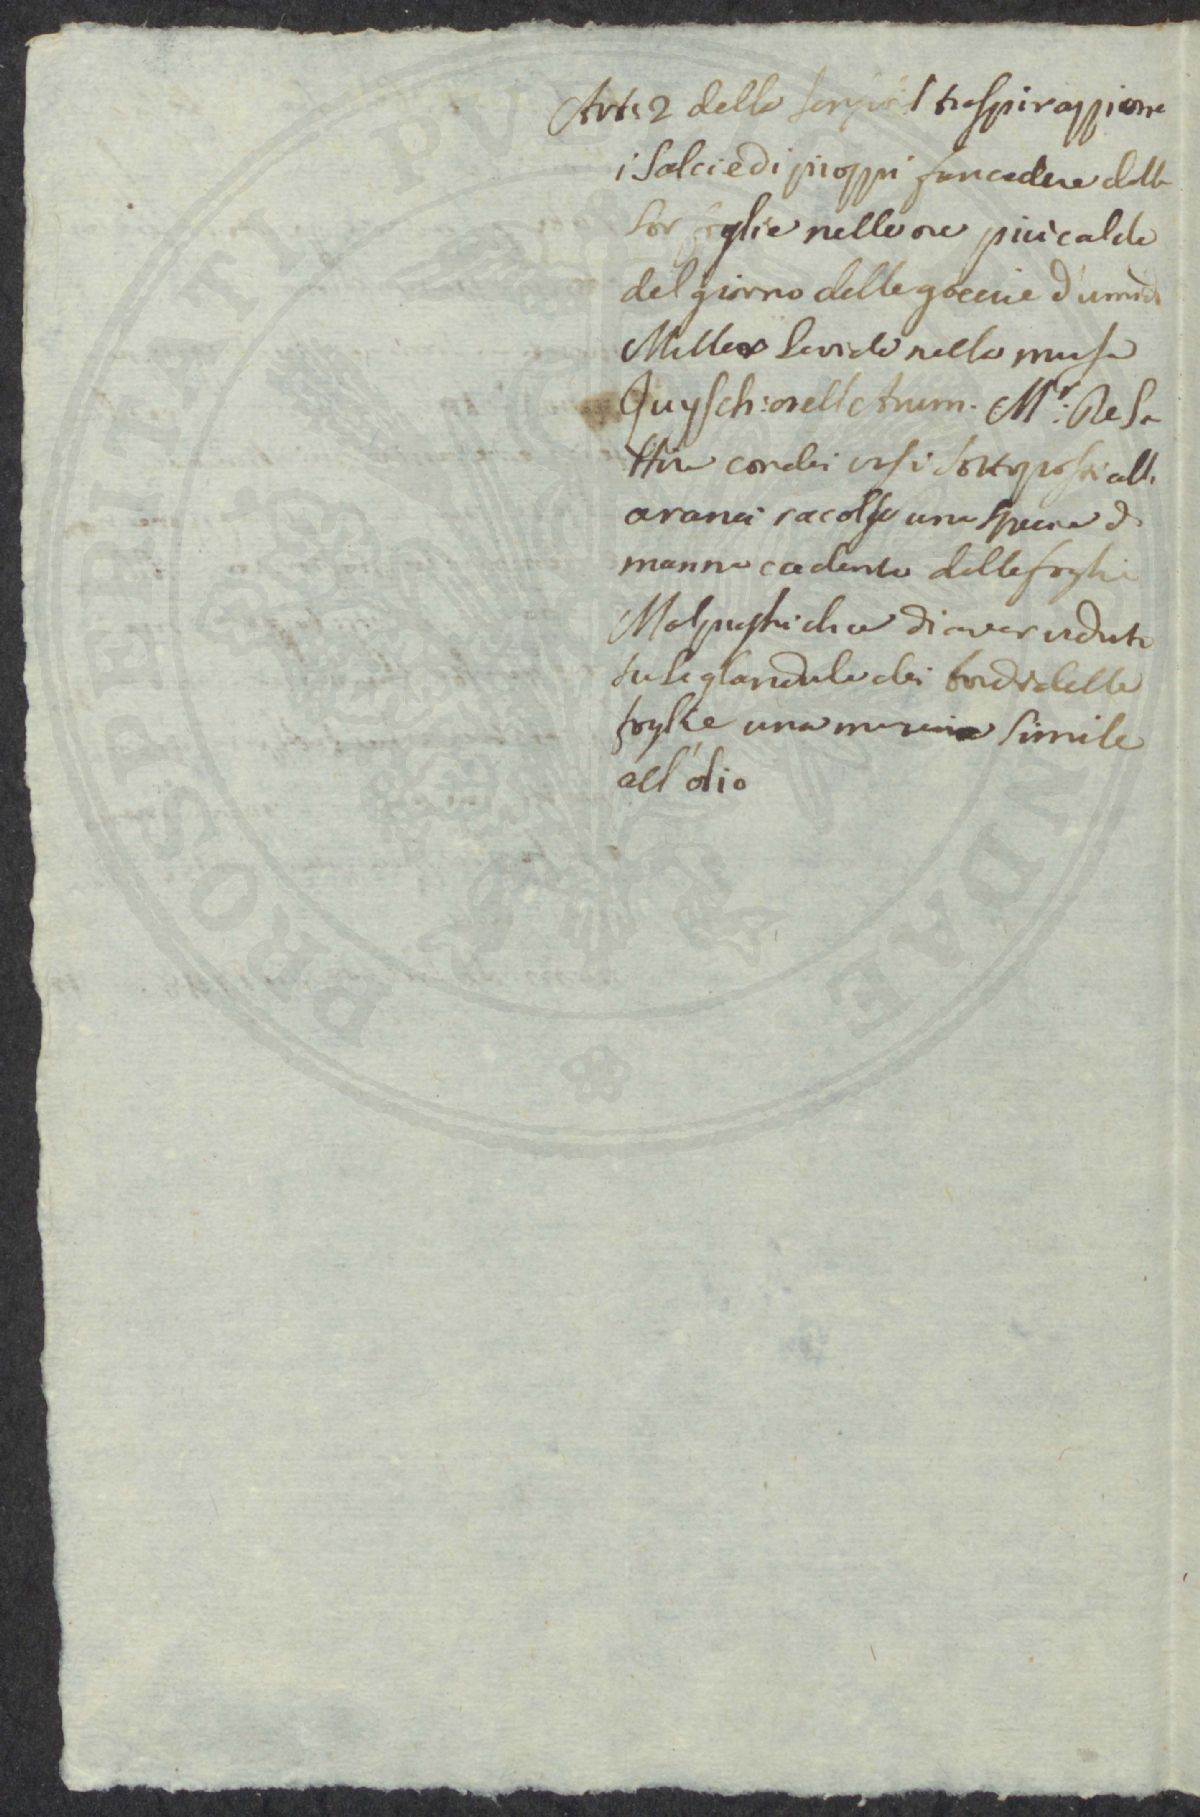 Arti 2 della traspirazzione
i Salci ed i pioppi fan cadere dalle
lor foglie nelle ore più calde
del giorno delle goccie d'umidi
Miller la vide nella musa
Ruysch: nell Arum. Mr: De la
Hire con dei vasi sottoposti alli
aranci racolse una specie di
manna cadente dalle foglie
Malpighi dice di aver veduto
su le glandule dei bordi delle
foglie una materia simile
all'olio
PROSPERITATI PVBLICAE